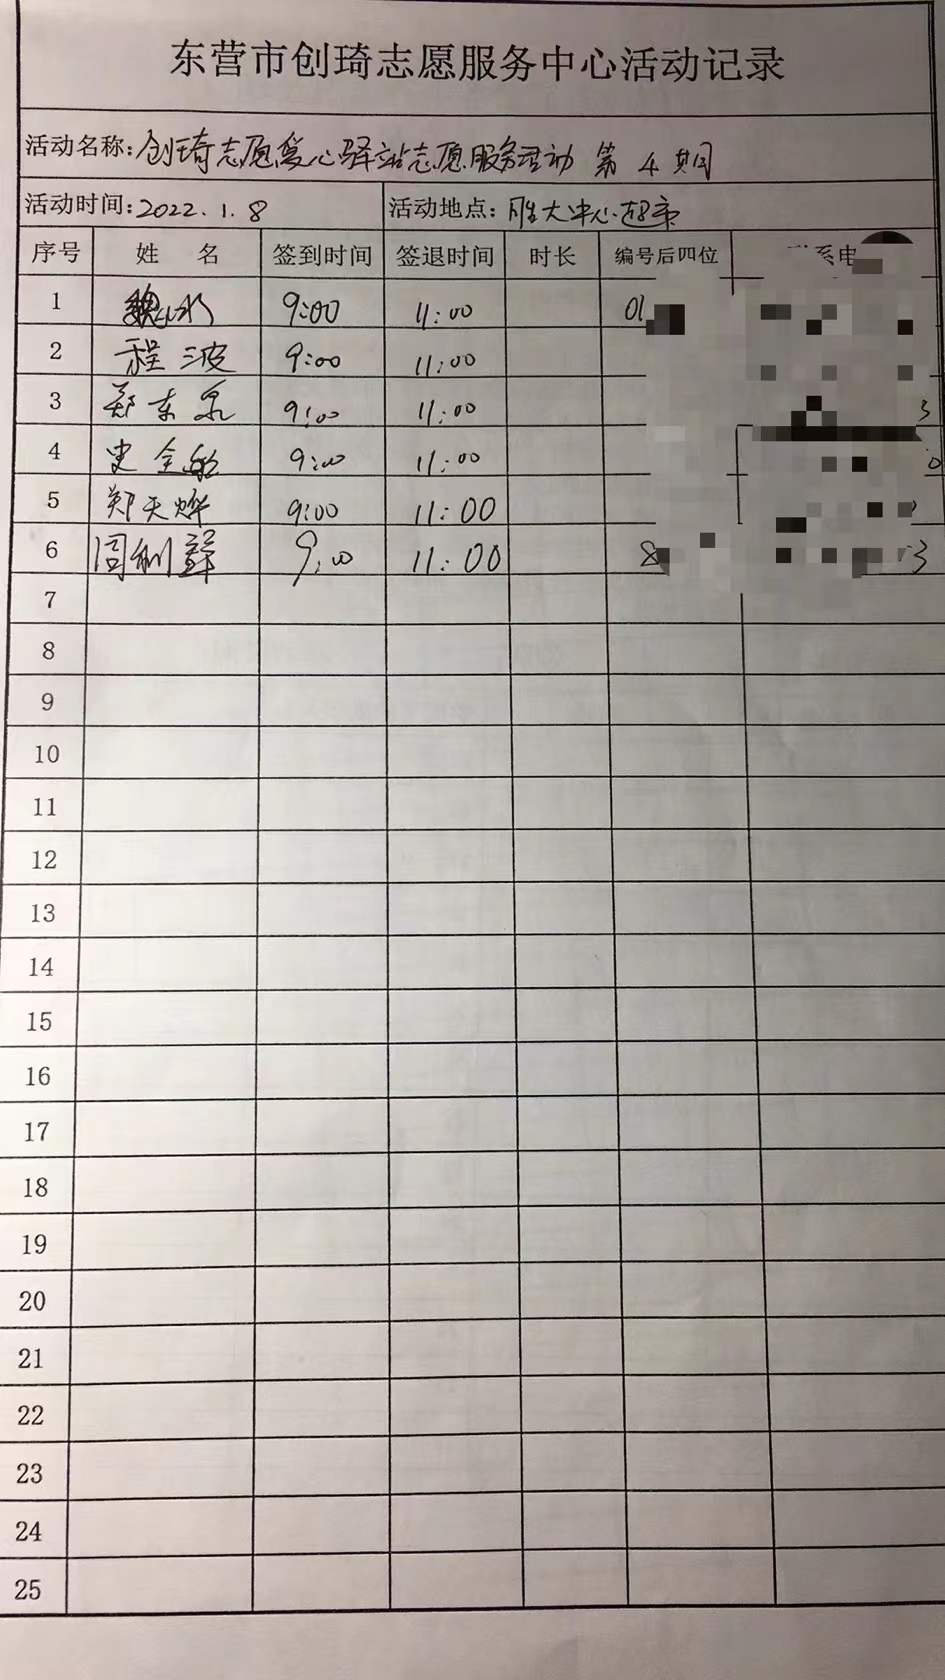 东营市创琦志愿服务中心活动记录
活动名称:创琦志愿爱心驿站志愿服务活动 第 4 期
活动时间:2022.1.8 活动地点:胜大中心超市
序号 姓 名 签到时间 签退时间 时长 编号后四位 系电
1 魏冰 9:00 11:00 01
2 程波 9:00 11:00
3 郑东泉 9:00 11:00 3
4 史全 9:00 11:00 0
5 郑天烨 9:00 11:00
6 周利群 9:00 11:00 8 3
7
8
9
10
11
12
13
14
15
16
17
18
19
20
21
22
23
24
25